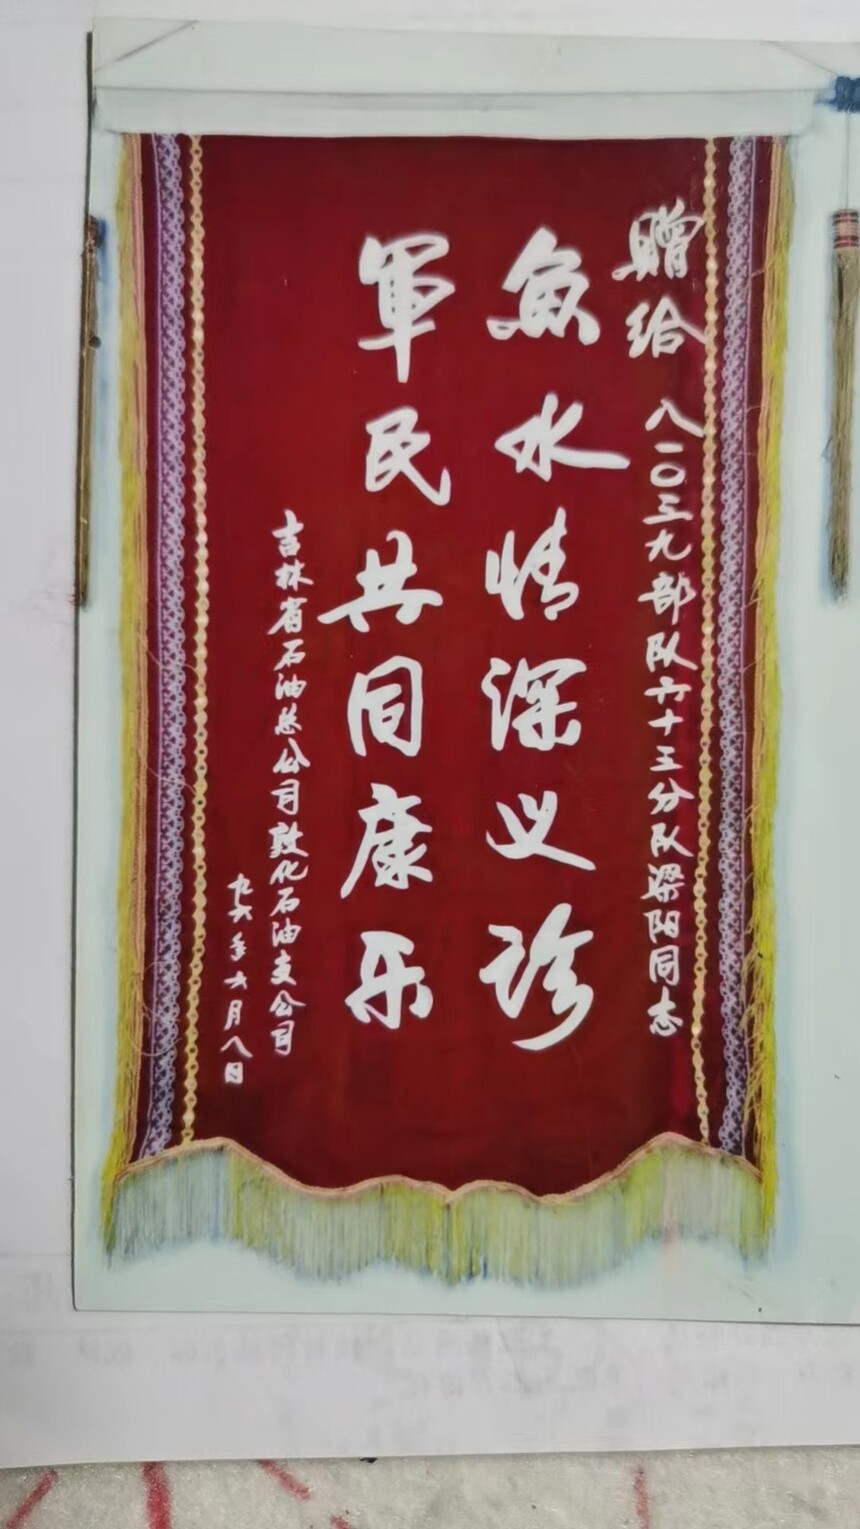 赠给 八一〇三九部队六十三分队梁阳同志
魚水情深义诊
軍民共同康乐
吉林省石油总公司敦化石油支公司
九六年六月八日